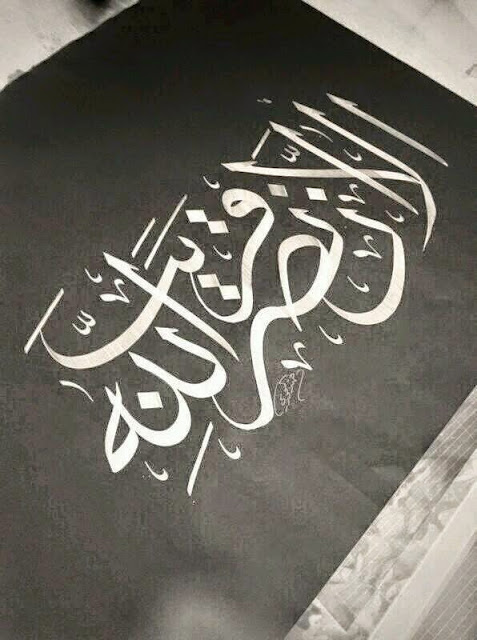 ألا إن نصر الله قريب